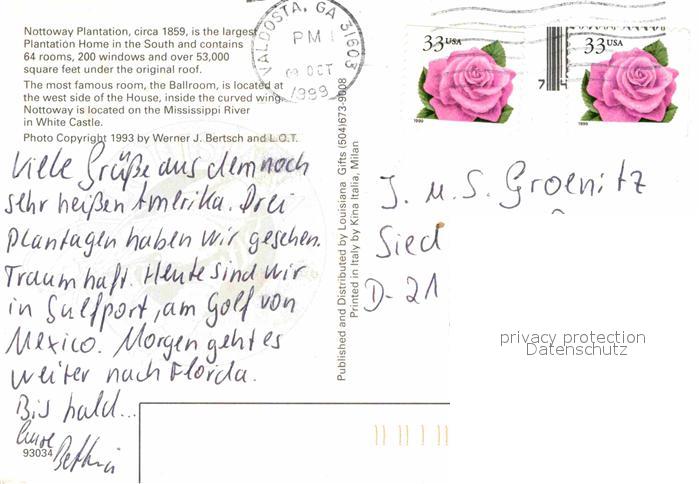 Nottoway Plantation, circa 1859, is the largest
Plantation Home in the South and contains
64 rooms, 200 windows and over 53,000
square feet under the original roof.
The most famous room, the Ballroom, is located at
the west side of the House, inside the curved wing.
Nottoway is located on the Mississippi River
in White Castle.
Photo Copyright 1993 by Werner J. Bertsch and L.O.T.
Viele Grüße aus dem noch
sehr heißen Amerika. Drei
Plantagen haben wir gesehen.
Traumhaft. Heute sind wir
in Gulfport, am Golf von
Mexico. Morgen geht es
weiter nach Florida.
Bis bald...
Eure
Bettina
93034
Published and Distributed by Louisiana Gifts (504)673-9008
Printed in Italy by Kina Italia, Milan
VALDOSTA, GA 31603
PM
09 OCT
1999
33 USA
1999
74
33 USA
1999
J. u. S. Groenitz
Sied
D-21
privacy protection
Datenschutz